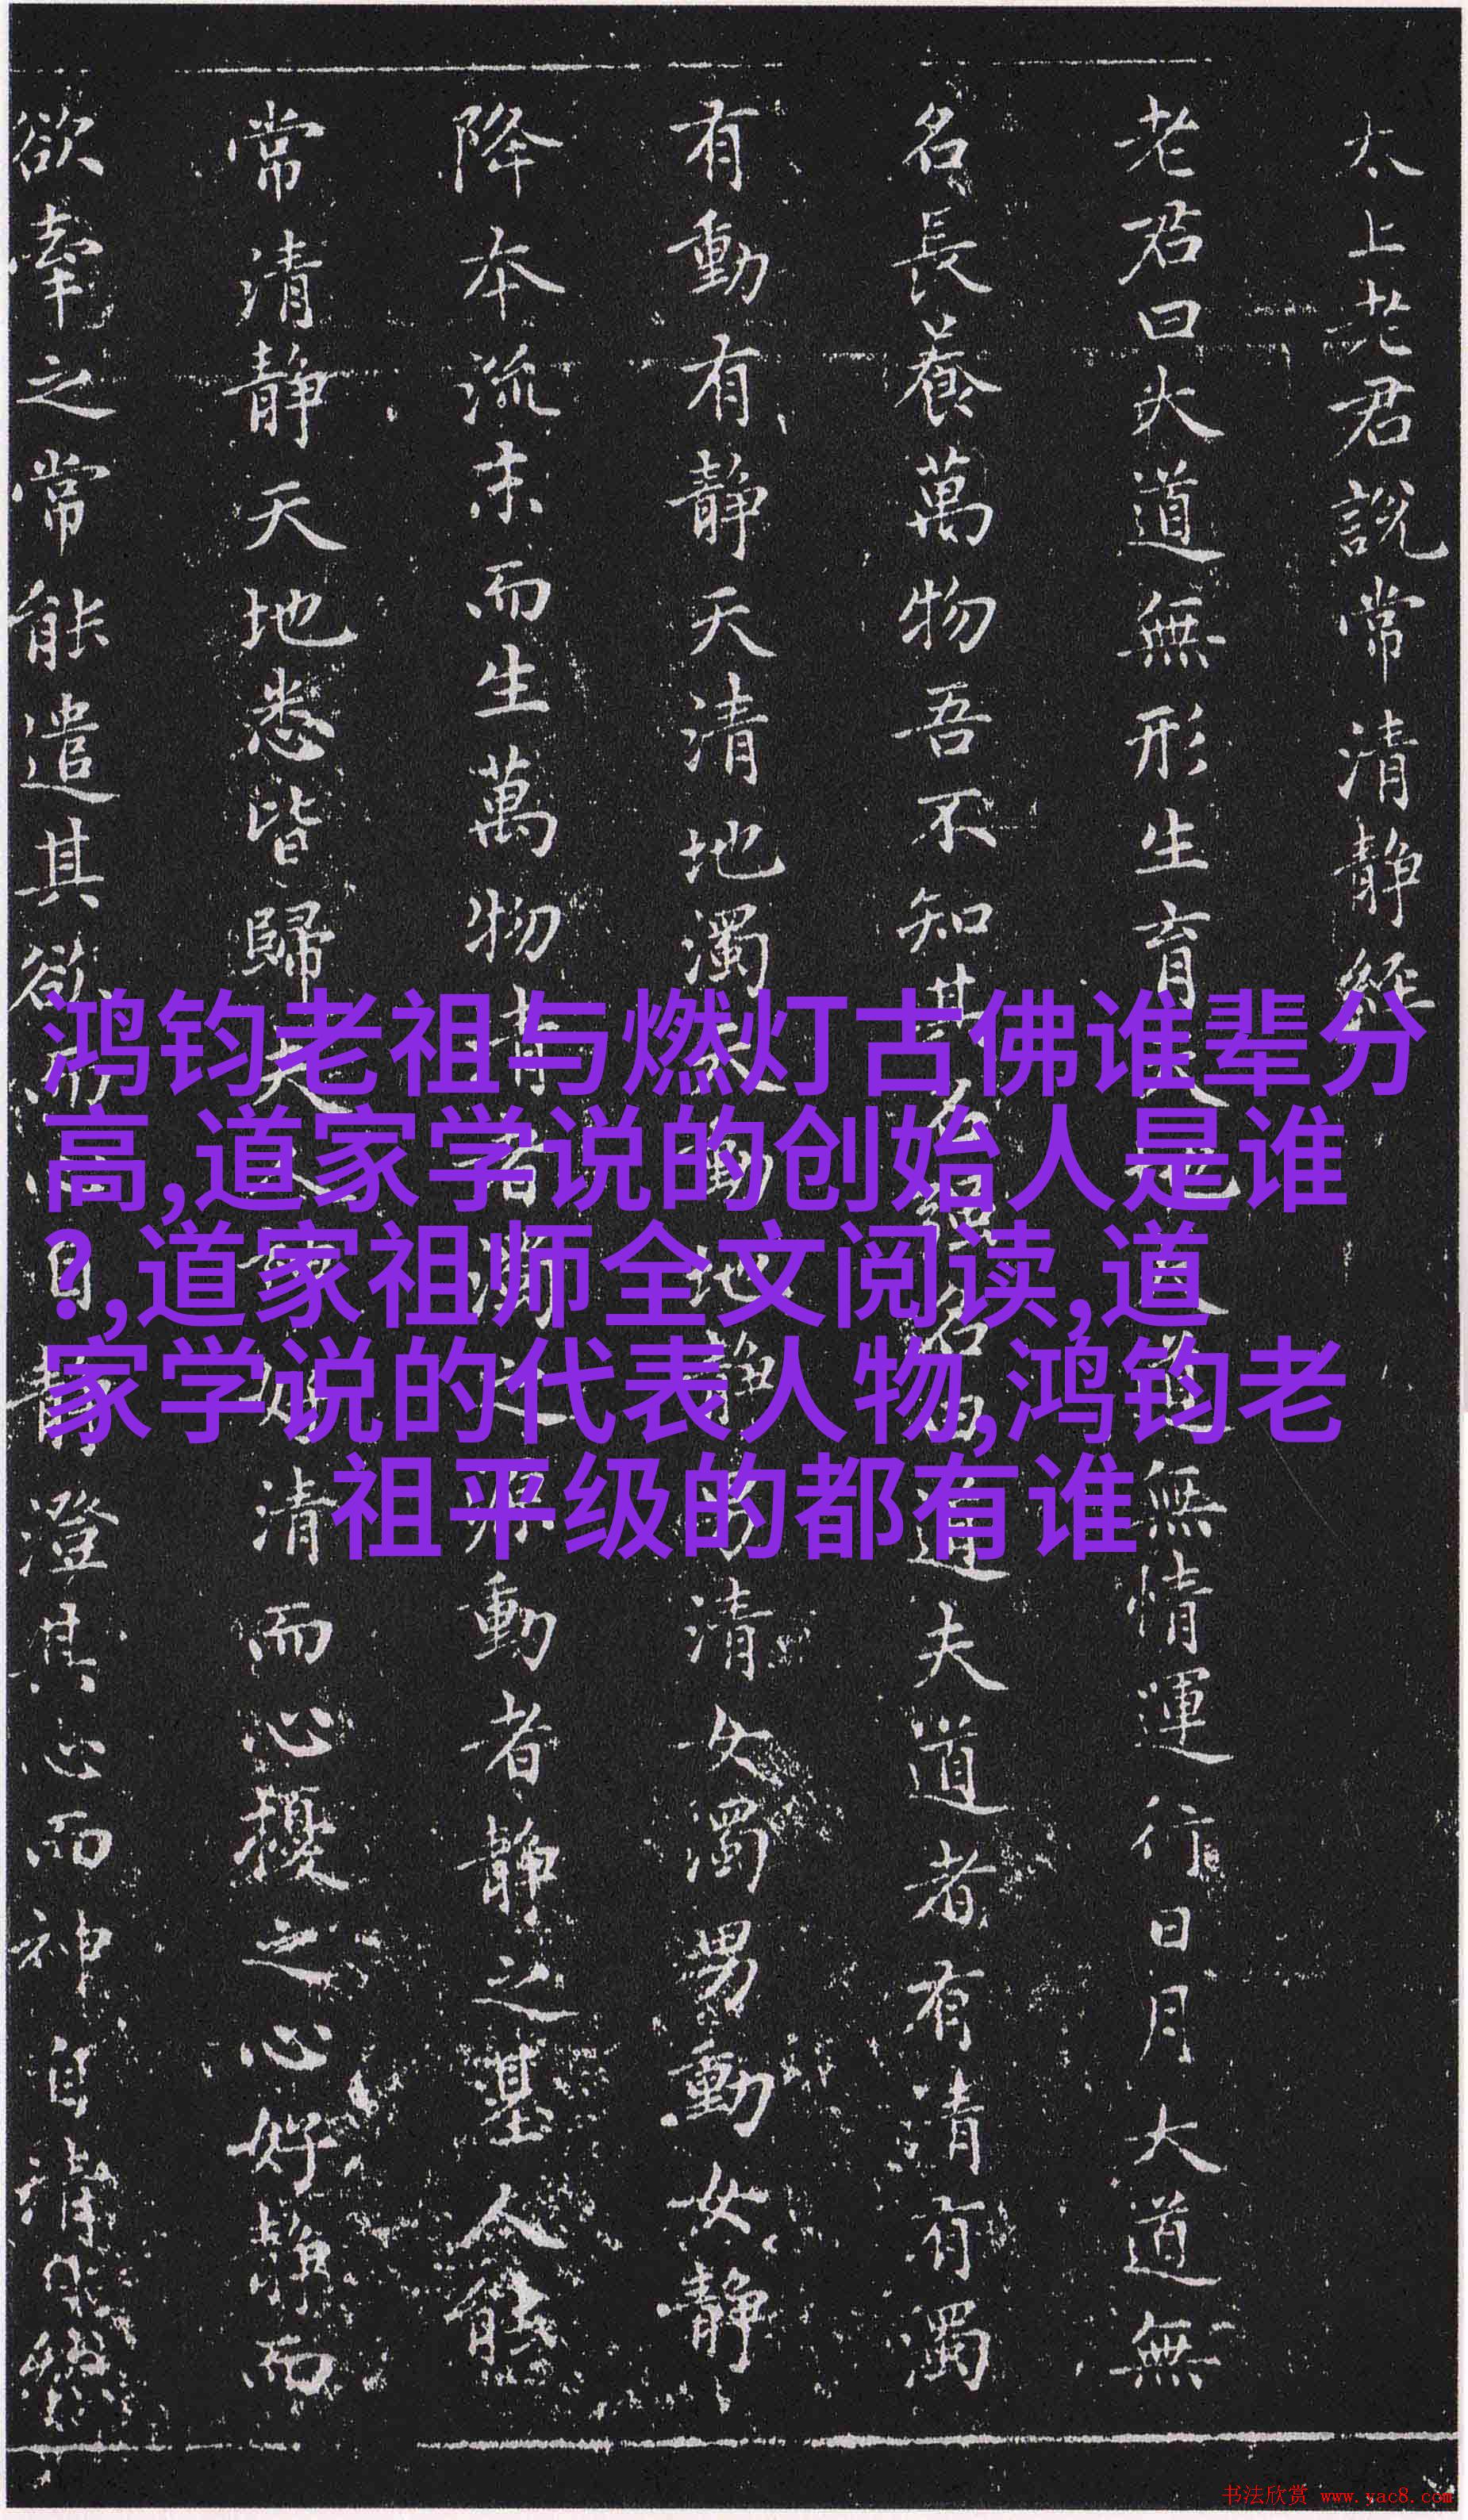 太上老君説常清静經
老君曰大道無形生育天地大道無情運行日月大道無
名長養萬物吾不知其名強名曰道夫道者有清有濁
有動有静天清地濁天動地静男清女濁男動女静
降本流末而生萬物清者濁之源動者静之基人能
常清静天地悉皆歸夫人神好清而心擾之心好静而
欲牽之常能遣其欲而心自静澄其心而神自清自然
鸿钧老祖与燃灯古佛谁辈分
高,道家学说的创始人是谁
?,道家祖师全文阅读,道
家学说的代表人物,鸿钧老
祖平级的都有谁
书法欣赏 www.yac8.com